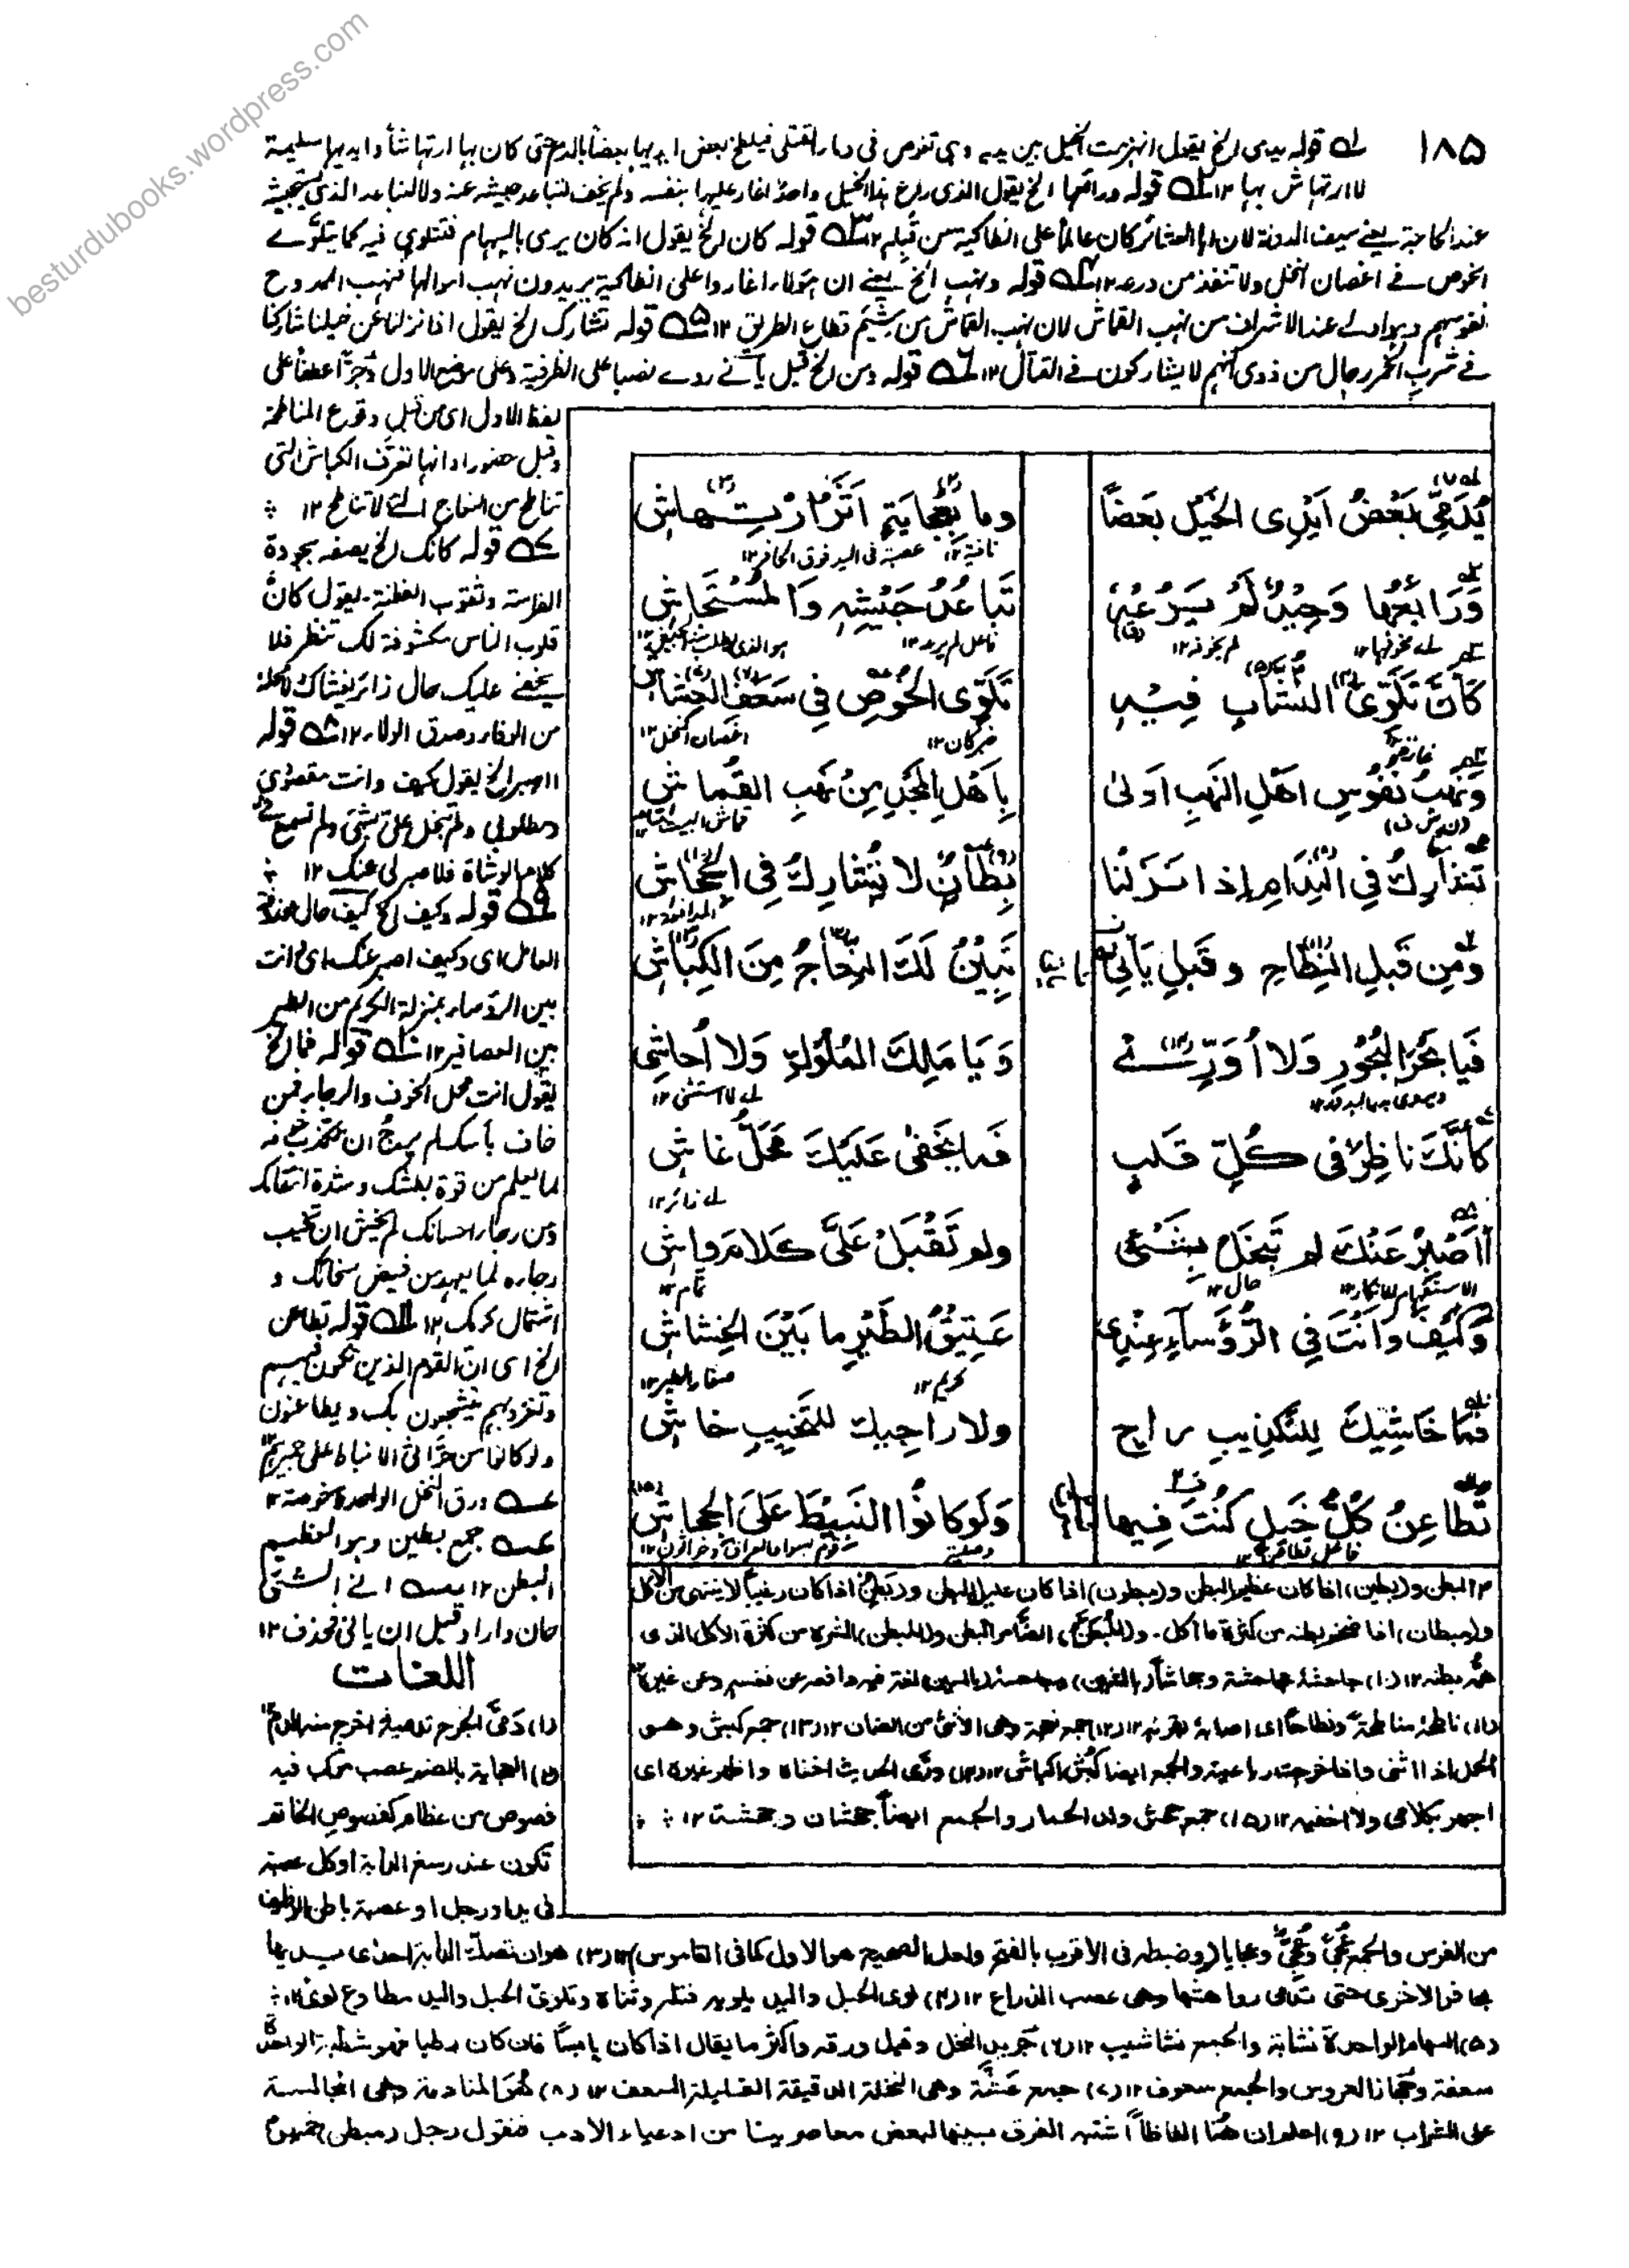 besturdubooks.wordpress.com
١٨٥
له قوله يدمى الخ يقول انهزمت الخيل بين يديه وهى تخوض فى دماء القتلى فيلطخ بعض ايديها بعضا بالدم حتى كان بها ارتهاشا وايديها سليمة
لا ارتهاش بها ١٢ قوله ورائعها الخ يقول الذى راع هذا الخيل واحد اغار عليها بنفسه ولم يخف لتباعد جيشه عنه ولا لتباعد الذى يستجيشه
عند الحاجة يعنے سيف الدولة لان ابا العشائر كان عاملا على انطاكية من قبله ١٢ قوله كان الخ يقول انه كان يرمى بالسهام فتتلوى فيه كما يتلوے
الخوص فے اغصان النخل ولا تنفذ من درعه ١٢ قوله ونهب الخ يعنے ان هؤلاء اغاروا على انطاكية يريدون نهب اموالها فنهب الممدوح
نفوسهم وهو اولے عند الاشراف من نهب القماش لان نهب القماش من شيم قطاع الطريق ١٢ قوله تشارك الخ يقول اذا نزلنا عن خيلنا شاركنا
فے شرب الخمر رجال من ذوى لانهم لا يشاركون فے القتال ١٢ قوله ومن الخ قبل يأنے روے نصبا على الظرفية وعلى موضع الاول وجرا عطفا على
لفظ الاول اى من قبل وقوع المناطحة
وقبل حضور اوانها تعرف الكباش التى
تناطح من النعاج التے لا تناطح ١٢
قوله كانك الخ يصفه بجودة
الفراسة وثقوب الفطنة يقول كان
قلوب الناس مكشوفة لك تنظر فلا
يخفے عليك حال زائر يغشاك
من الوفاء وصدق الولاء ١٢ قوله
ااصبر الخ يقول كيف وانت مقصودى
ومطلوبى ولم تبخل على بشئ ولم تسمع
كلام الوشاة فلا صبر لى عنك ١٢
قوله وكيف الخ كيف حال
العامل اى وكيف اصبر عنك وانت
بين الرؤساء بمنزلة الكريم من الطير
بين العصافير ١٢ قوله فما الخ
يقول انت محل الخوف والرجاء فمن
خاف بأسك لم يرج ان تكذب خوفه
لما يعلم من قوة بطشك وشدة انتقامك
ومن رجا احسانك لم يخش ان تخيب
رجاءه لما يعهد من فيض سخائك و
اشتمال كرمك ١٢ قوله تطاعن
الخ اى ان القوم الذين تكون فيهم
وتغزو بهم يتشجعون بك ويطاعنون
ولو كانوا من حراثى الانباط على حميرهم
ورق النخل الواحدة خوصة ١٢
جمع بطين وهو العظيم
البطن ١٢ انے الشئ
حان واراد قبل ان يانى فحذف ١٢
يُدَمِّي بَعْضُ اَيْدِى الخَيْلِ بَعْضًا
وما بِعُجايَةٍ اَثَرُ ارْتِهاشِ
نافية ١٢ عصبة فى اليد فوق الحافر ١٢
وَرَائِعُهَا وَحِيدٌ لَمْ يَرُعْهُ
تَبَاعُدُ جَيْشِهِ وَالمُسْتَجَاشِ
اے مخوفها ١٢ لم يخوفه ١٢ فاعل لم يرعه ١٢
كَأَنَّ تَلَوِّى النُّشَّابِ فِيْهِ
تَلَوِّى الخُوصِ فِي سَعَفِ العِشَاشِ
خبر كان ١٢ اغصان النخل ١٢
وَنَهْبُ نُفُوسِ اَهْلِ النَّهْبِ اَولىٰ
بِاَهْلِ المَجْدِ مِنْ نَهْبِ القُمَاشِ
قماش البيت متاعه
تُشَارِكُ فِي النِّدَامِ إذا نَزَلْنا
بِطَانٌ لا تُشارِكُ فِى الجِحَاشِ
المدافعة ١٢
وَمِن قَبلِ النِّطَاحِ وقَبلِ يَأنِي
تَبِيْنُ لَكَ النِّعَاجُ مِنَ الكِبَاشِ
فَيَا بَحْرَ البُحُورِ وَلا اُوَرِّى
وَيَا مَلِكَ المُلُوكِ وَلا أُحاشِى
اے لا استثنى ١٢
كَأَنَّكَ نَاظِرٌ فى كُلِّ قَلبٍ
فَما يَخْفىٰ عَلَيْكَ مَحَلُّ غاشِ
اے زائر ١٢
أاَصْبِرُ عَنْكَ لم تَبْخَلْ بِشَىْءٍ
ولم تَقْبَلْ عَلَىَّ كَلامَ واشِ
الاستفهام للانكار ١٢ حال ١٢ نمام ١٢
وَكَيْفَ وَاَنْتَ فِي الرُّؤَسَآءِ عِنْدِى
عَتِيقُ الطَّيْرِ ما بَيْنَ الخِشَاشِ
كريم ١٢ صغار الطير ١٢
فَمَا خَاشِيْكَ لِلتَّكْذِيبِ راجٍ
ولا رَاجِيكَ لِلتَّخْيِيبِ خاشِ
تُطَاعِنُ كُلُّ خَيلٍ كُنْتَ فِيها
وَلَوكَانُوا النَّبِيْطَ عَلَى الجِحَاشِ
فاعل تطاعن ١٢ وصلية قوم بسواد العراق حراثون ١٢
البطن و(بطين) اذا كان عظيم البطن و(مبطون) اذا كان عليل البطن و(بطن) اذا كان رغيبا لا ينتهى من الاكل
و(مبطان) اذا ضخم بطنه من كثرة ما أكل. و(المبطن) الضامر البطن و(البطن) الشره من كثرة الأكل الذى
همه بطنه ١٢ (١٠) جاحشه مجاحشة وجحاشا (بالشين) وجاحسه (بالسين) لغة فيه دافعه عن نفسه وعن غيره ١٢
(١١) ناطحه مناطحة ونطاحا اى اصابه بقرنه ١٢ (١٢) جمع نعجة وهى الأنثى من الضان ١٢ (١٣) جمع كبش وهو
الحمل اذا اثنى واذا خرجت رباعيته والجمع ايضا كبش اكباش ١٢ (١٤) ورى الحديث اخفاه واظهر غيره اى
اجهر بكلامى ولا اخفيه ١٢ (١٥) جمع جحش ولد الحمار والجمع ايضا جحشان وجحشة ١٢
اللغات
(١) دَمَّى الجرح تدمية اخرج منه الدم ١٢
(٢) العجاية بالضم عصب مركب فيه
فصوص من عظام كفصوص الخاتم
تكون عند رسغ الدابة او كل عصبة
فى يد او رجل او عصبة باطن الوظيف
من الفرس والجمع عُجىً وعُجِىّ وعجايا (وضبطه فى الأقرب بالفتح ولعل الصحيح هو الاول كما فى القاموس) ١٢ (٣) هو ان تصك الدابة احدى يديها
بحافر الاخرى حتى تدمى رواهشها وهى عصب الذراع ١٢ (٤) لوى الحبل واليد يلويه فتله وثناه وتلوى الحبل واليد مطاوع لوى ١٢
(٥) السهام الواحدة نشابة والجمع نشاشيب ١٢ (٦) جريد النخل وقيل ورقه واكثر ما يقال اذا كان يابسا فان كان رطبا فهو شطبة الواحدة
سعفة وجهاز العروس والجمع سعوف ١٢ (٧) جمع عَشَّة وهى النخلة الدقيقة القليلة السعف ١٢ (٨) هو المنادمة وهى المجالسة
على الشراب ١٢ (٩) اعلم ان هنا الفاظا اشتبه الفرق بينها لبعض معاصرينا من ادعياء الادب فنقول رجل (مبطن) خميص